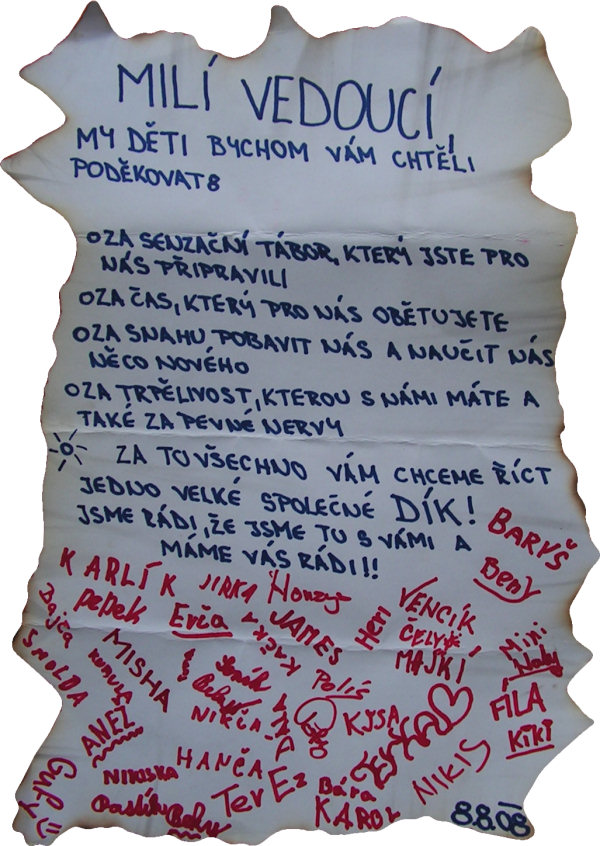 MILÍ VEDOUCÍ,
MY DĚTI BYCHOM VÁM CHTĚLI
PODĚKOVAT:
ZA SENZAČNÍ TÁBOR, KTERÝ JSTE PRO
NÁS PŘIPRAVILI
ZA ČAS, KTERÝ PRO NÁS OBĚTUJETE
ZA SNAHU POBAVIT NÁS A NAUČIT NÁS
NĚCO NOVÉHO
ZA TRPĚLIVOST, KTEROU S NÁMI MÁTE A
TAKÉ ZA PEVNÉ NERVY
ZA TO VŠECHNO VÁM CHCEME ŘÍCT
JEDNO VELKÉ SPOLEČNÉ DÍK!
JSME RÁDI, ŽE JSME TU S VÁMI A
MÁME VÁS RÁDI!!
BARYŠ
Beny
KARLÍK JIRKA Honzys
VENCÍK
Dajča pepek Evča KAČKA JAMES Heri ČELYŠ
SMOLDA MISHA MAJKÍ Mini
Poliš
NIKČA KJSA FÍLA
ANEZ Kiki
HANČA NIKIS
NIKISKA TerEz Bára
KAROL
8.8.08